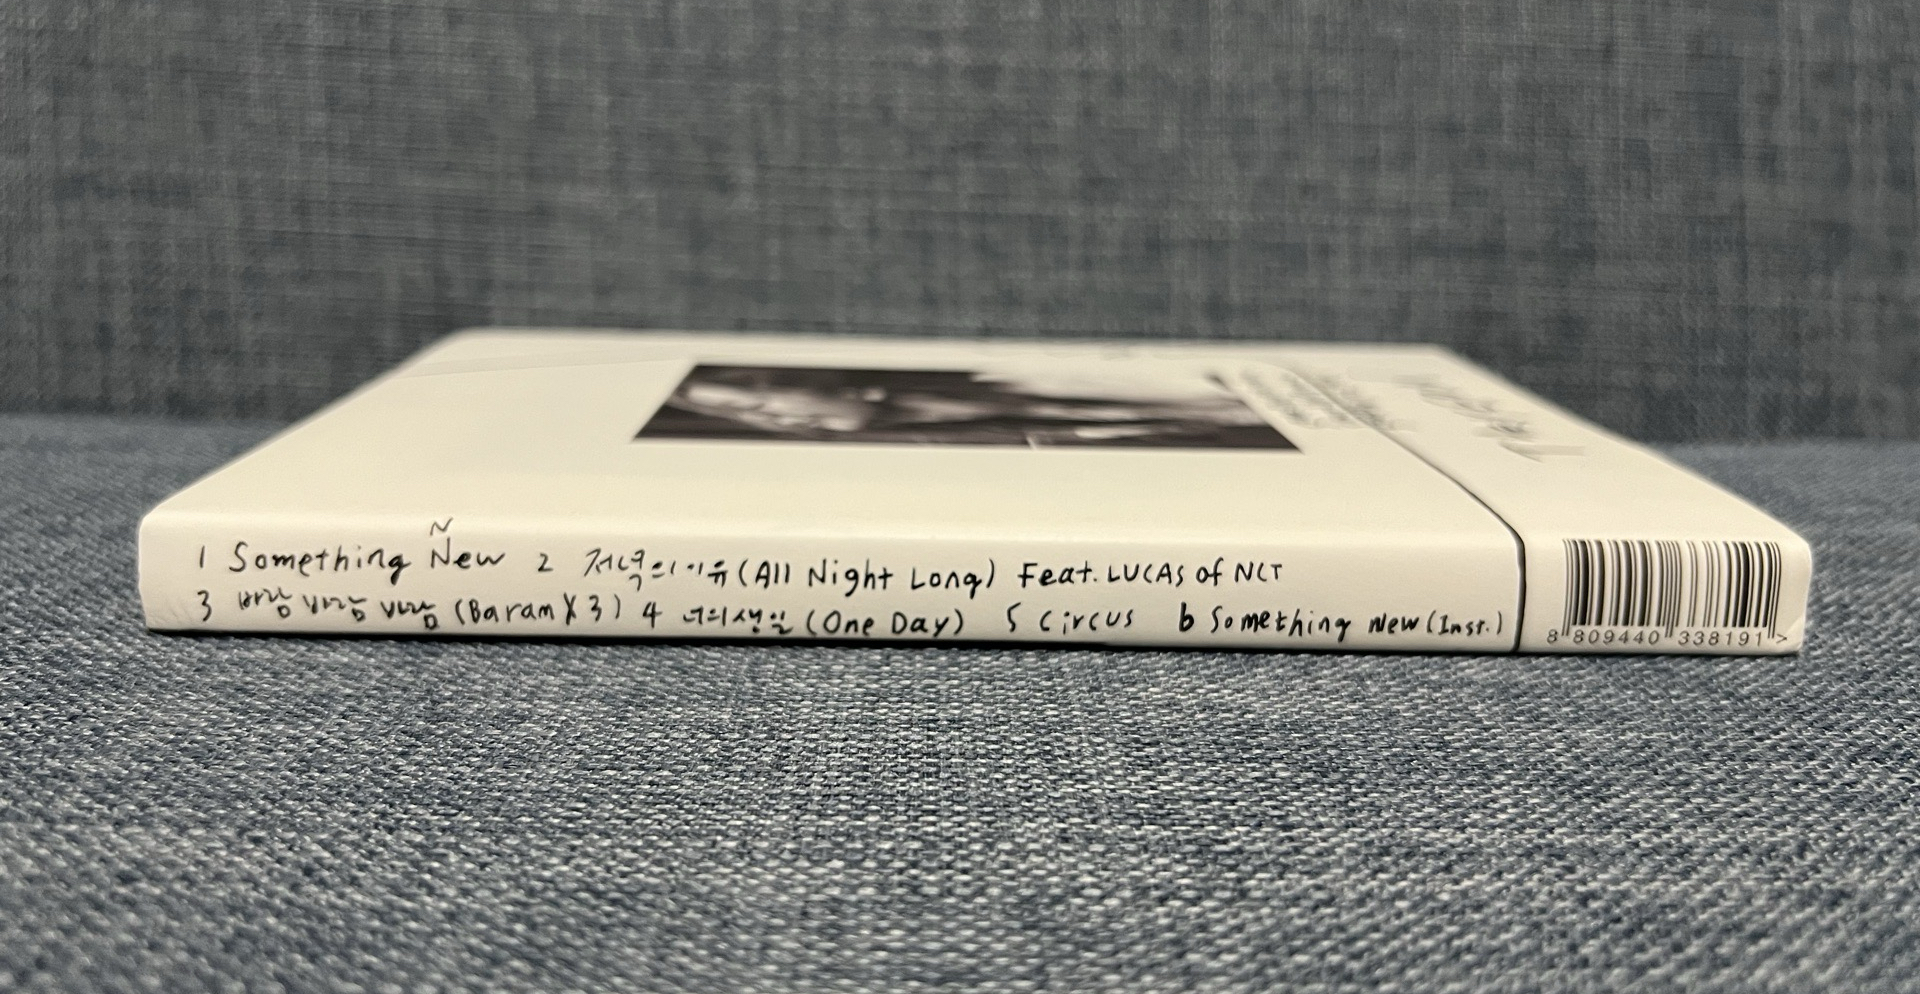 1 Something New 2 저녁의 이유 (All Night Long) Feat. LUCAS of NCT
3 바람 바람 바람 (Baram X 3) 4 너의 생일 (One Day) 5 Circus 6 Something New (Inst.)
8 809440 338191 >